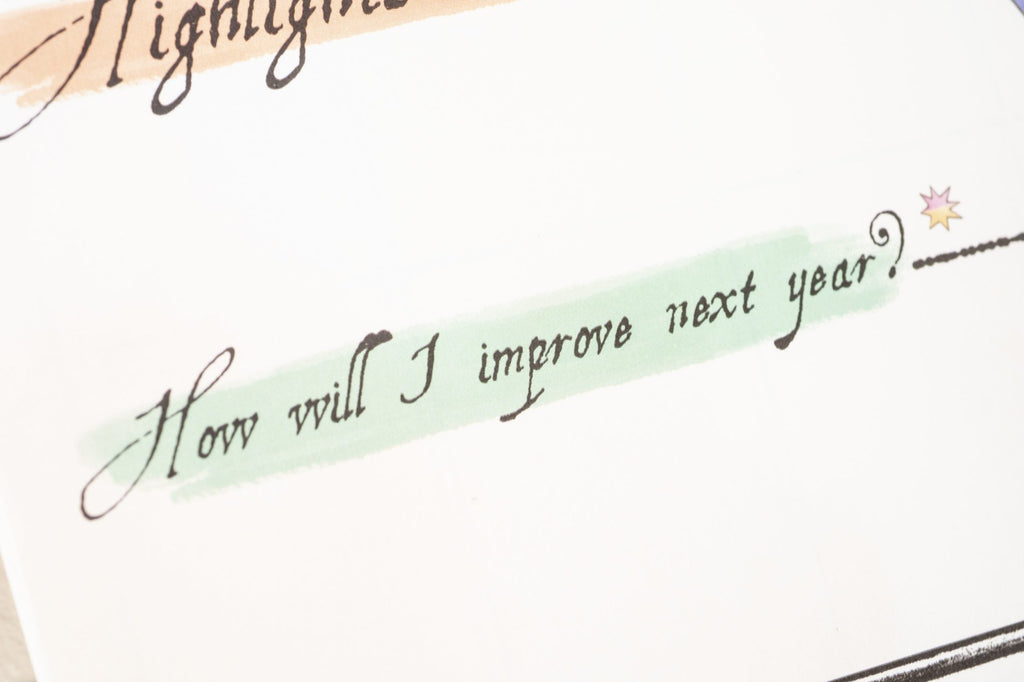 Highlights
How will I improve next year?